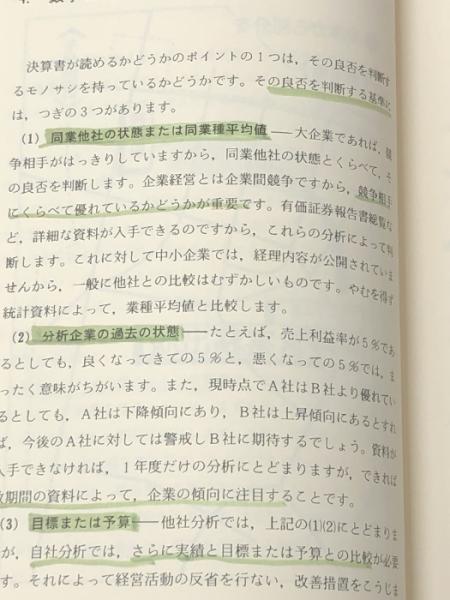 決算書が読めるかどうかのポイントの1つは，その良否を判断す
るモノサシを持っているかどうかです。その良否を判断する基準に
は，つぎの3つがあります。
(1) 同業他社の状態または同業種平均値──大企業であれば，競
争相手がはっきりしていますから，同業他社の状態とくらべて，そ
の良否を判断します。企業経営とは企業間競争ですから，競争相手
にくらべて優れているかどうかが重要です。有価証券報告書総覧な
ど，詳細な資料が入手できるのですから，これらの分析によって判
断します。これに対して中小企業では，経理内容が公開されていま
せんから，一般に他社との比較はむずかしいものです。やむを得ず
統計資料によって，業種平均値と比較します。
(2) 分析企業の過去の状態──たとえば，売上利益率が5％であ
るとしても，良くなってきての5％と，悪くなっての5％では，ま
ったく意味がちがいます。また，現時点でA社はB社より優れてい
るとしても，A社は下降傾向にあり，B社は上昇傾向にあるとすれ
ば，今後のA社に対しては警戒しB社に期待するでしょう。資料が
入手できなければ，1年度だけの分析にとどまりますが，できれば
数期間の資料によって，企業の傾向に注目することです。
(3) 目標または予算──他社分析では，上記の(1)(2)にとどまりま
が，自社分析では，さらに実績と目標または予算との比較が必要
す。それによって経営活動の反省を行ない，改善措置をこうじま